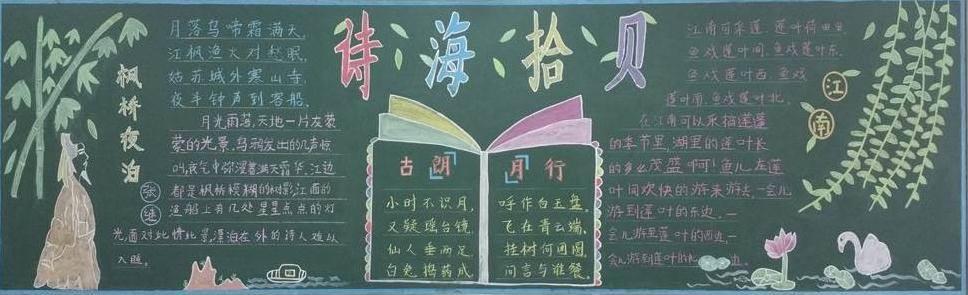 诗海拾贝
枫桥夜泊
张继
月落乌啼霜满天,
江枫渔火对愁眠,
姑苏城外寒山寺,
夜半钟声到客船。
月光雨落,天地一片左蒙
蒙的光景,乌鸦发出的几声惊
叫,夜气中弥漫着满天霜华,江边
都是枫桥模糊的树影,江面的
渔船上有几处星星点点的灯
光,面对此情此景,漂泊在外的诗人难以
入睡。
古朗月行
小时不识月,
又疑瑶台镜,
仙人垂两足,
白兔捣药成,
呼作白玉盘。
飞在青云端。
桂树何团圆。
问言与谁餐。
江南
江南可采莲,莲叶何田田
鱼戏莲叶间,鱼戏莲叶东,
鱼戏莲叶西,鱼戏
莲叶南,鱼戏莲叶北。
在江南可以采摘莲蓬
的季节里,湖里的莲叶长
的多么茂盛啊!鱼儿在莲
叶间欢快的游来游去,一会儿
游到莲叶的东边,一
会儿游到莲叶的西边,一
会儿游到莲叶的 边。